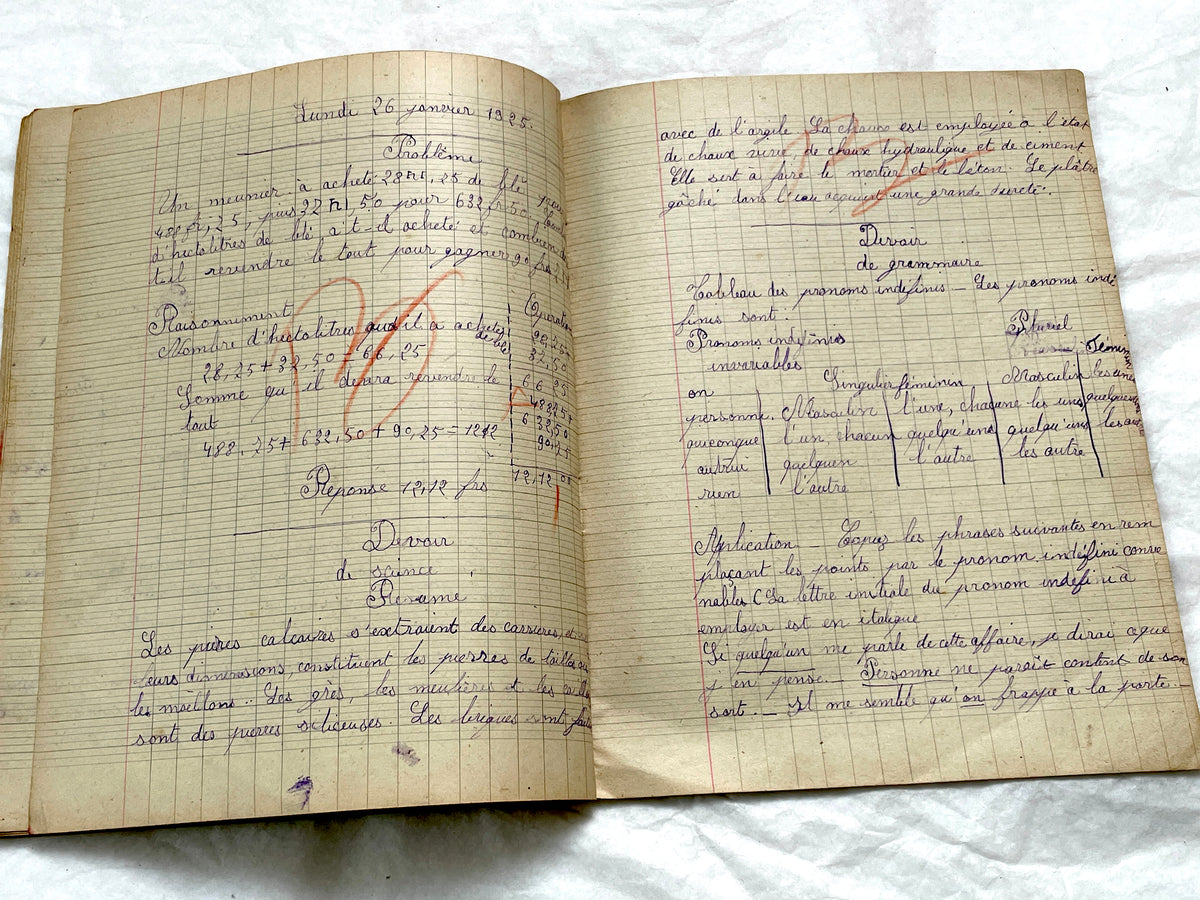 Lundi 26 janvier 1925.
Problème
Un meunier à acheté 28hl,25 de blé pour
488 fr,25, puis 32 hl,50 pour 632 fr 50.
d'hectolitres de blé a t-il acheté et combien
t-il revendre le tout pour gagner 90 frs,
Raisonnement
Nombre d'hectolitres qu'il a achetés
de blé
28,25 + 32,50 = 66,25
Somme qu'il devra revendre le
tout
488,25 + 632,50 + 90,25 = 1212
Réponse 12,12 frs
Opération
32,50
66 25
488 25+
632,50
90,25
12,12 00
Devoir
de science
Résumé
Les pierres calcaires s'extraient des carrières,
leurs dimensions, constituent les pierres de tailles
les moëllons. Les grès, les meulières et les
sont des pierres siliceuses. Les briques sont
avec de l'argile. La chaux est employée à l'état
de chaux vive, de chaux hydraulique et de ciment
Elle sert à faire le mortier et le béton. Le plâtre
gâché dans l'eau acquiert une grande dureté.
Devoir
de grammaire
Tableau des pronoms indéfinis — Les pronoms indé
finis sont.
Pronoms indéfinis
invariables
Pluriel
on
personne.
quiconque
autrui
rien
Singulier
Masculin
l'un, chacun
quelquen
l'autre
féminin
l'une, chacune
quelqu'une
l'autre
Masculin
les uns
quelqu'uns
les autre
les unes
quelques
Application — Copiez les phrases suivantes en rem
plaçant les points par le pronom indéfini conve
nables (La lettre initiale du pronom indéfini à
employer est en italique
Si quelqu'un me parle de cette affaire, je dirai ce que
j'en pense. — Personne ne paraît content de son
sort. — Il me semble qu'on frappe à la porte. —